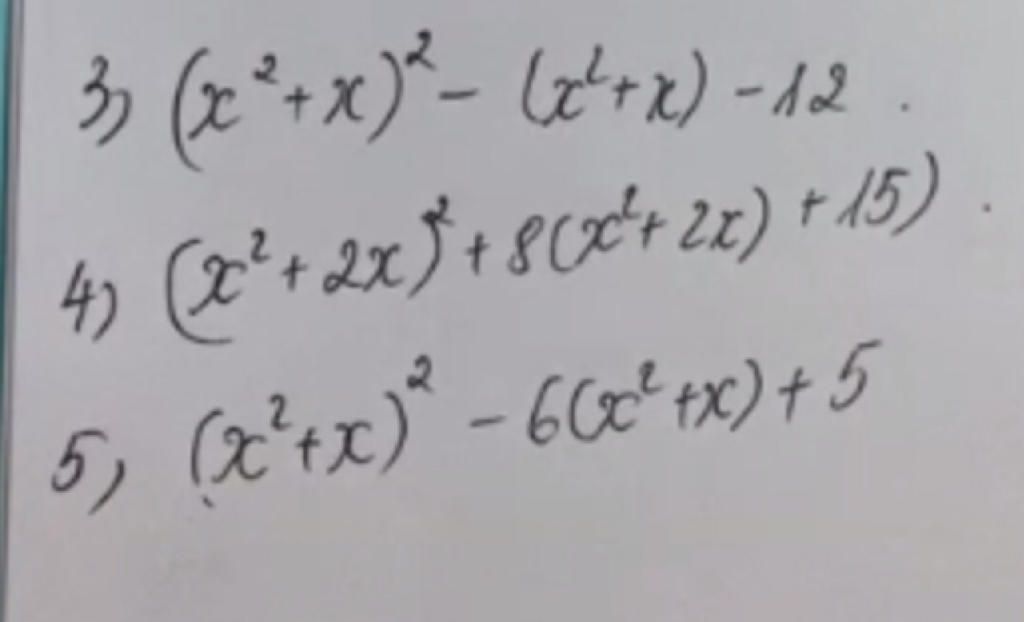 3) (x² + x)² - (x² + x) - 12 .
4) (x² + 2x)² + 8(x² + 2x) + 15) .
5, (x² + x)² - 6(x² + x) + 5